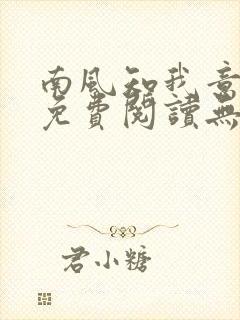 南風知我意
免費閱讀無
君小糖